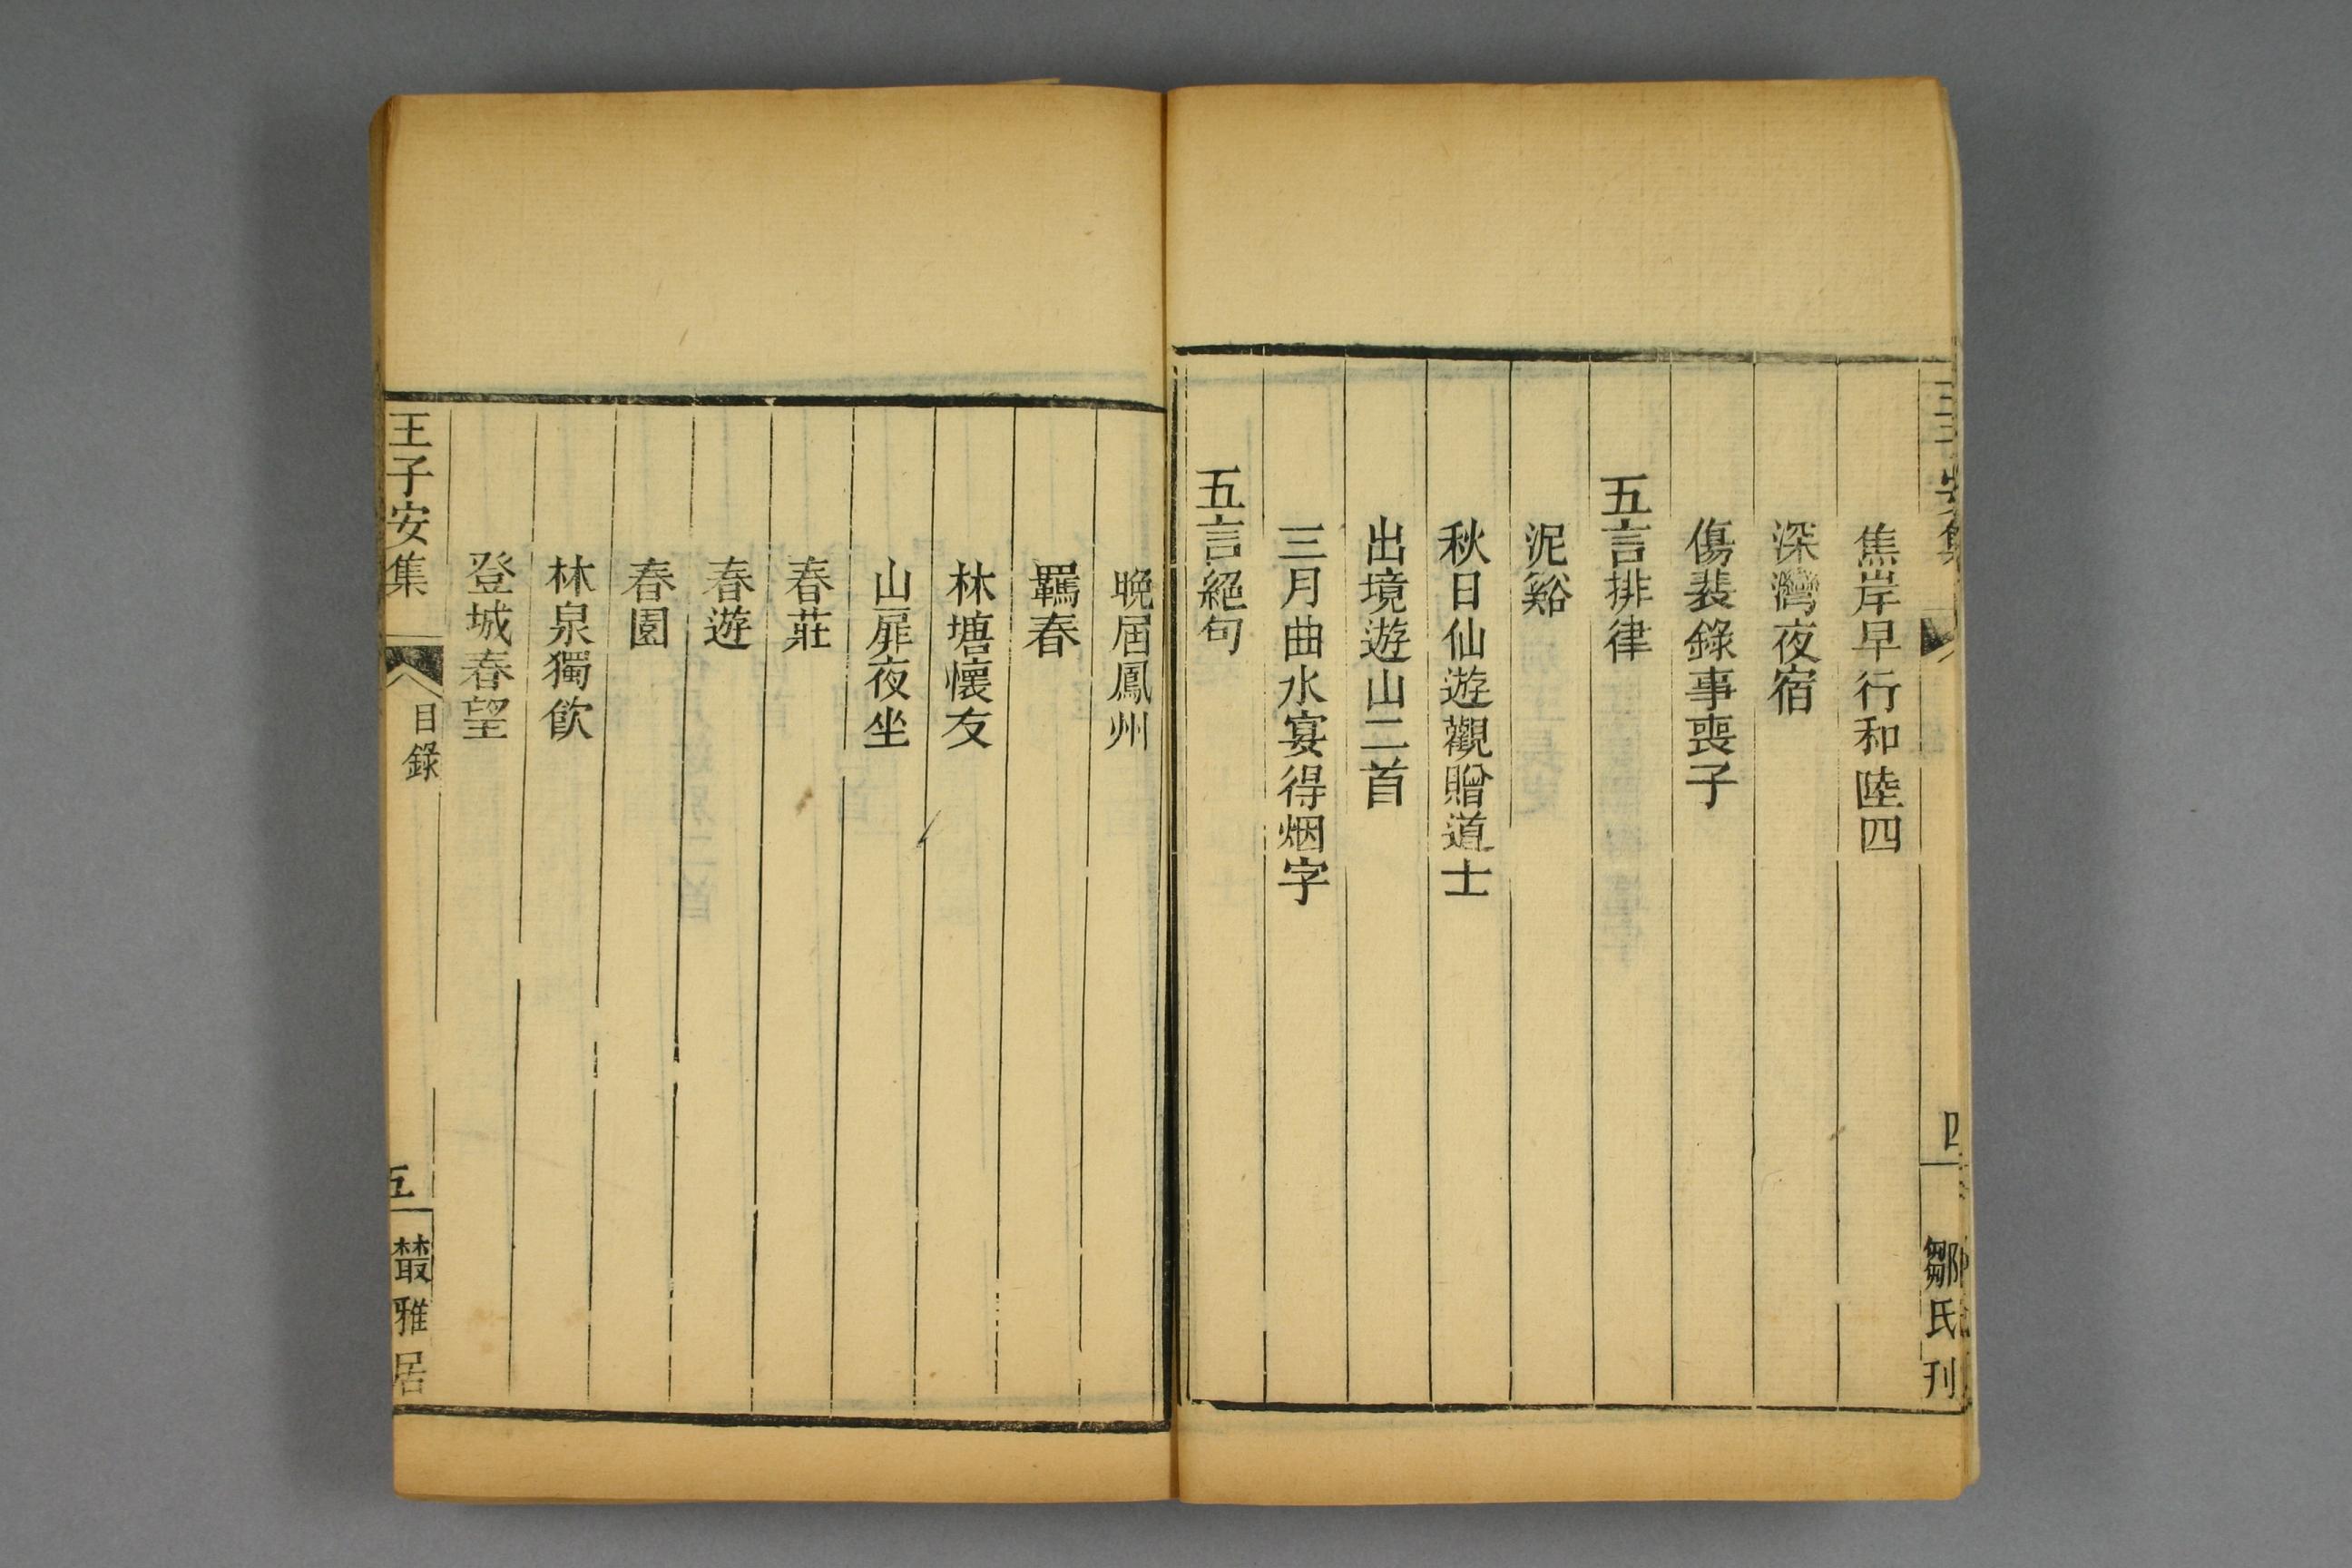 王子安集
四
鄒氏刊
焦岸早行和陸四
深灣夜宿
傷裴錄事喪子
五言排律
泥谿
秋日仙遊觀贈道士
出境遊山二首
三月曲水宴得烟字
五言絕句
晚屆鳳州
羈春
林塘懷友
山扉夜坐
春莊
春遊
春園
林泉獨飲
登城春望
王子安集
目錄
五
叢雅居